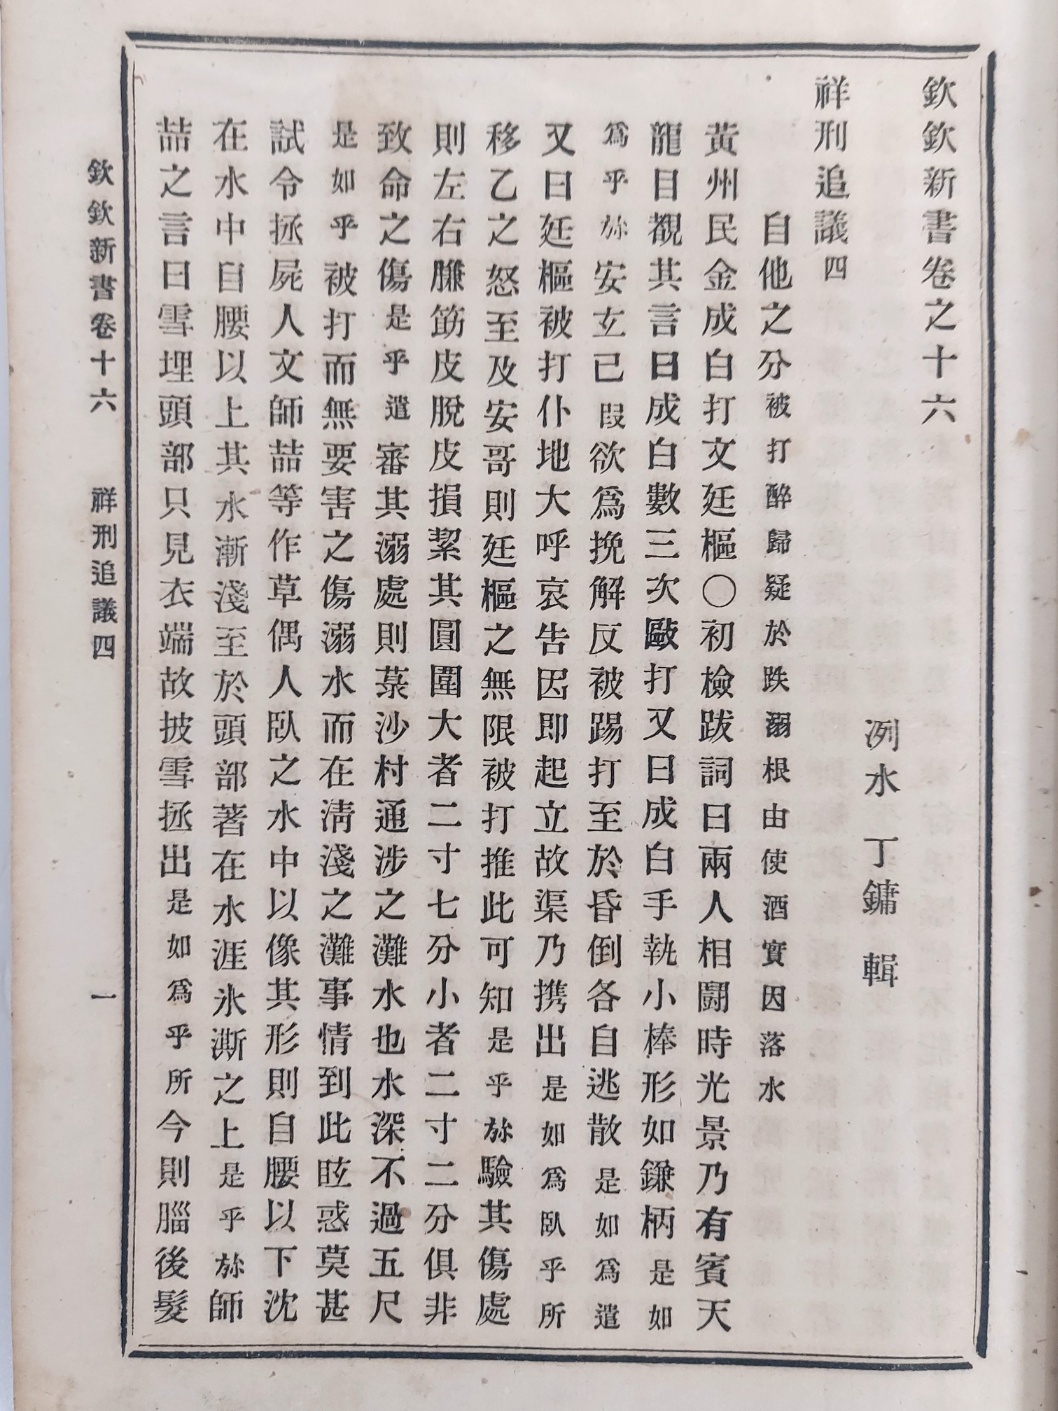 欽欽新書卷之十六
洌水 丁鏞 輯
祥刑追議四
自他之分被打醉歸疑於跌溺根由使酒實因落水
黃州民金成白打文廷樞〇初檢跋詞曰兩人相鬪時光景乃有賓天
龍目覩其言曰成白數三次毆打又曰成白手執小棒形如鎌柄是如
爲乎旀安玄己叚欲爲挽解反被踢打至於昏倒各自逃散是如爲遣
又曰廷樞被打仆地大呼哀告因即起立故渠乃携出是如爲臥乎所
移乙之怒至及安哥則廷樞之無限被打推此可知是乎旀驗其傷處
則左右臁筋皮脫皮損絜其圓圍大者二寸七分小者二寸二分俱非
致命之傷是乎遣審其溺處則菉沙村通涉之灘水也水深不過五尺
是如乎被打而無要害之傷溺水而在淸淺之灘事情到此眩惑莫甚
試令拯屍人文師喆等作草偶人臥之水中以像其形則自腰以下沈
在水中自腰以上其水漸淺至於頭部著在水涯氷澌之上是乎旀師
喆之言曰雪埋頭部只見衣端故披雪拯出是如爲乎所今則腦後髮
欽欽新書卷十六 祥刑追議四 一